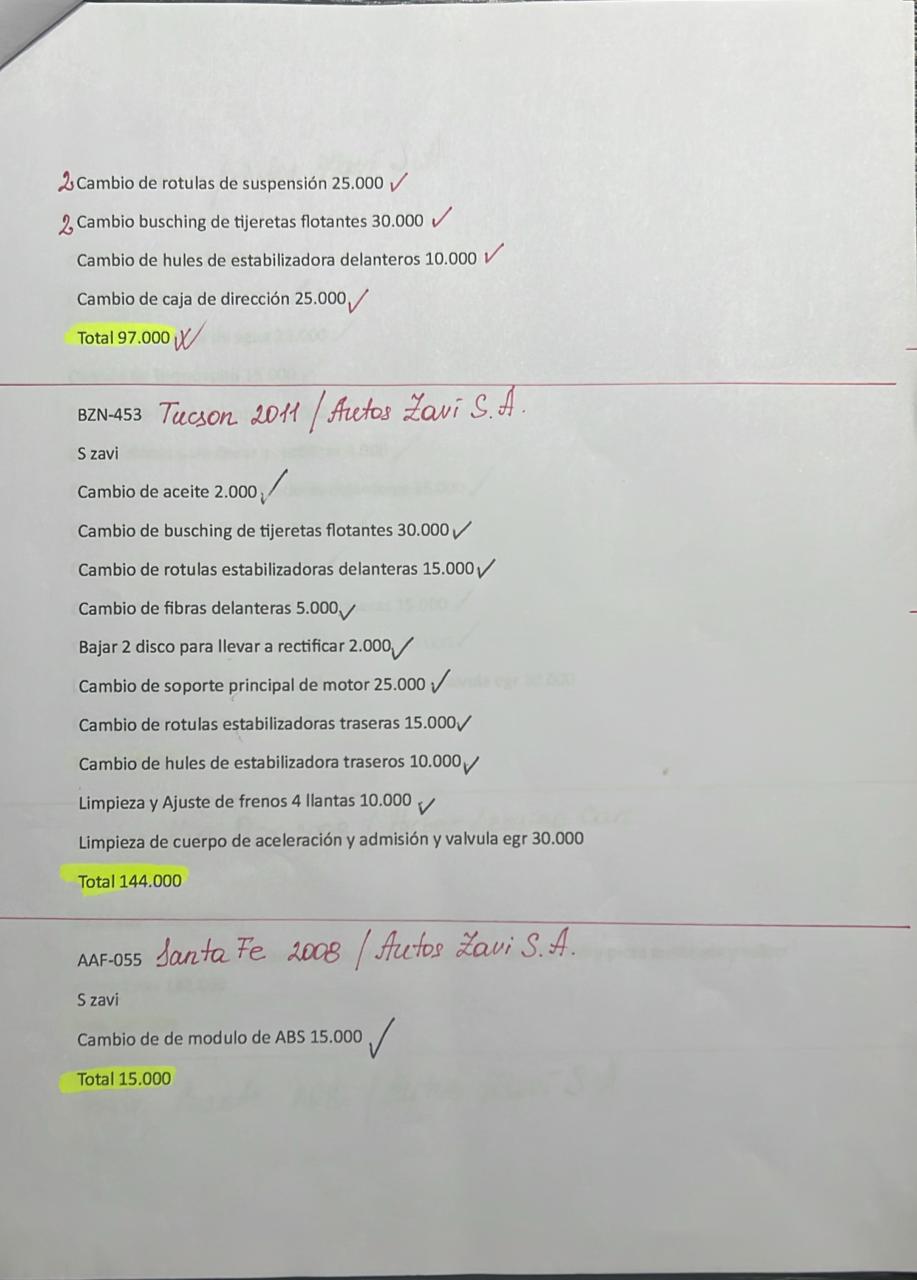 2 Cambio de rotulas de suspensión 25.000 ✓
2 Cambio busching de tijeretas flotantes 30.000 ✓
Cambio de hules de estabilizadora delanteros 10.000 ✓
Cambio de caja de dirección 25.000 ✓
Total 97.000 X
BZN-453 Tucson 2011 / Autos Zavi S.A.
S zavi
Cambio de aceite 2.000 ✓
Cambio de busching de tijeretas flotantes 30.000 ✓
Cambio de rotulas estabilizadoras delanteras 15.000 ✓
Cambio de fibras delanteras 5.000 ✓
Bajar 2 disco para llevar a rectificar 2.000 ✓
Cambio de soporte principal de motor 25.000 ✓
Cambio de rotulas estabilizadoras traseras 15.000 ✓
Cambio de hules de estabilizadora traseros 10.000 ✓
Limpieza y Ajuste de frenos 4 llantas 10.000 ✓
Limpieza de cuerpo de aceleración y admisión y valvula egr 30.000
Total 144.000
AAF-055 Santa Fe 2008 / Autos Zavi S.A.
S zavi
Cambio de de modulo de ABS 15.000 ✓
Total 15.000